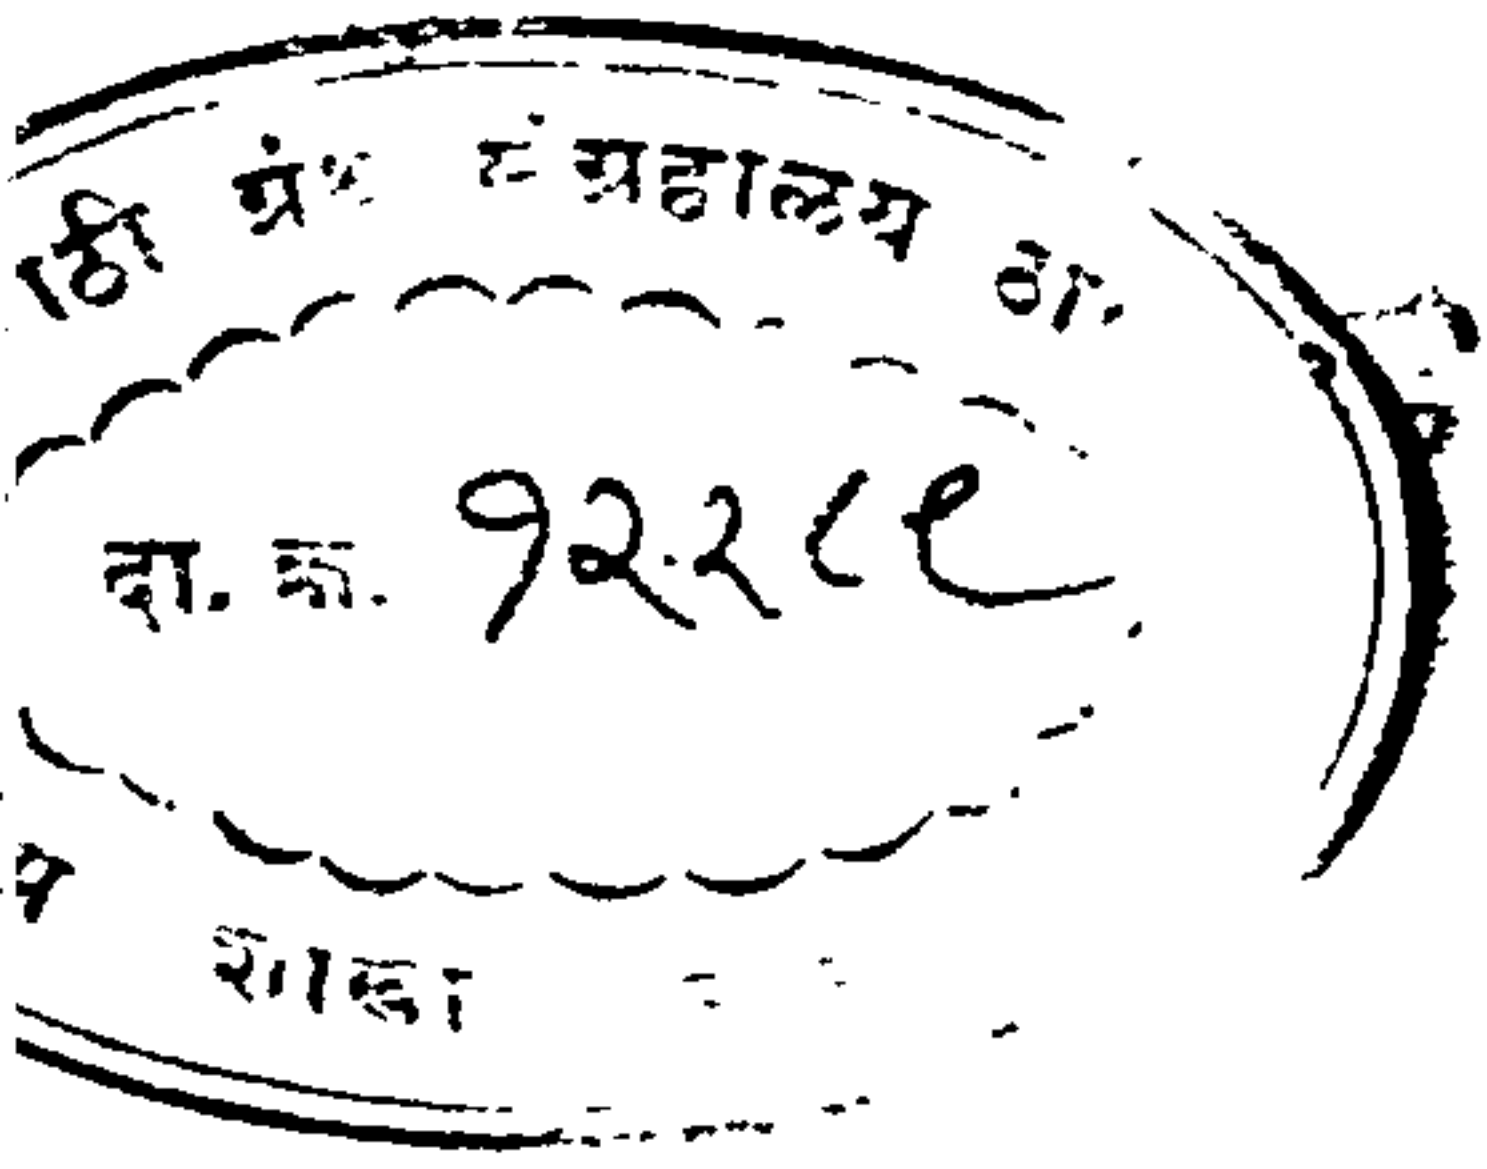 ाठी ग्रंथ संग्रहालय ठा.
दा. क्र. १२२८९
शाखा